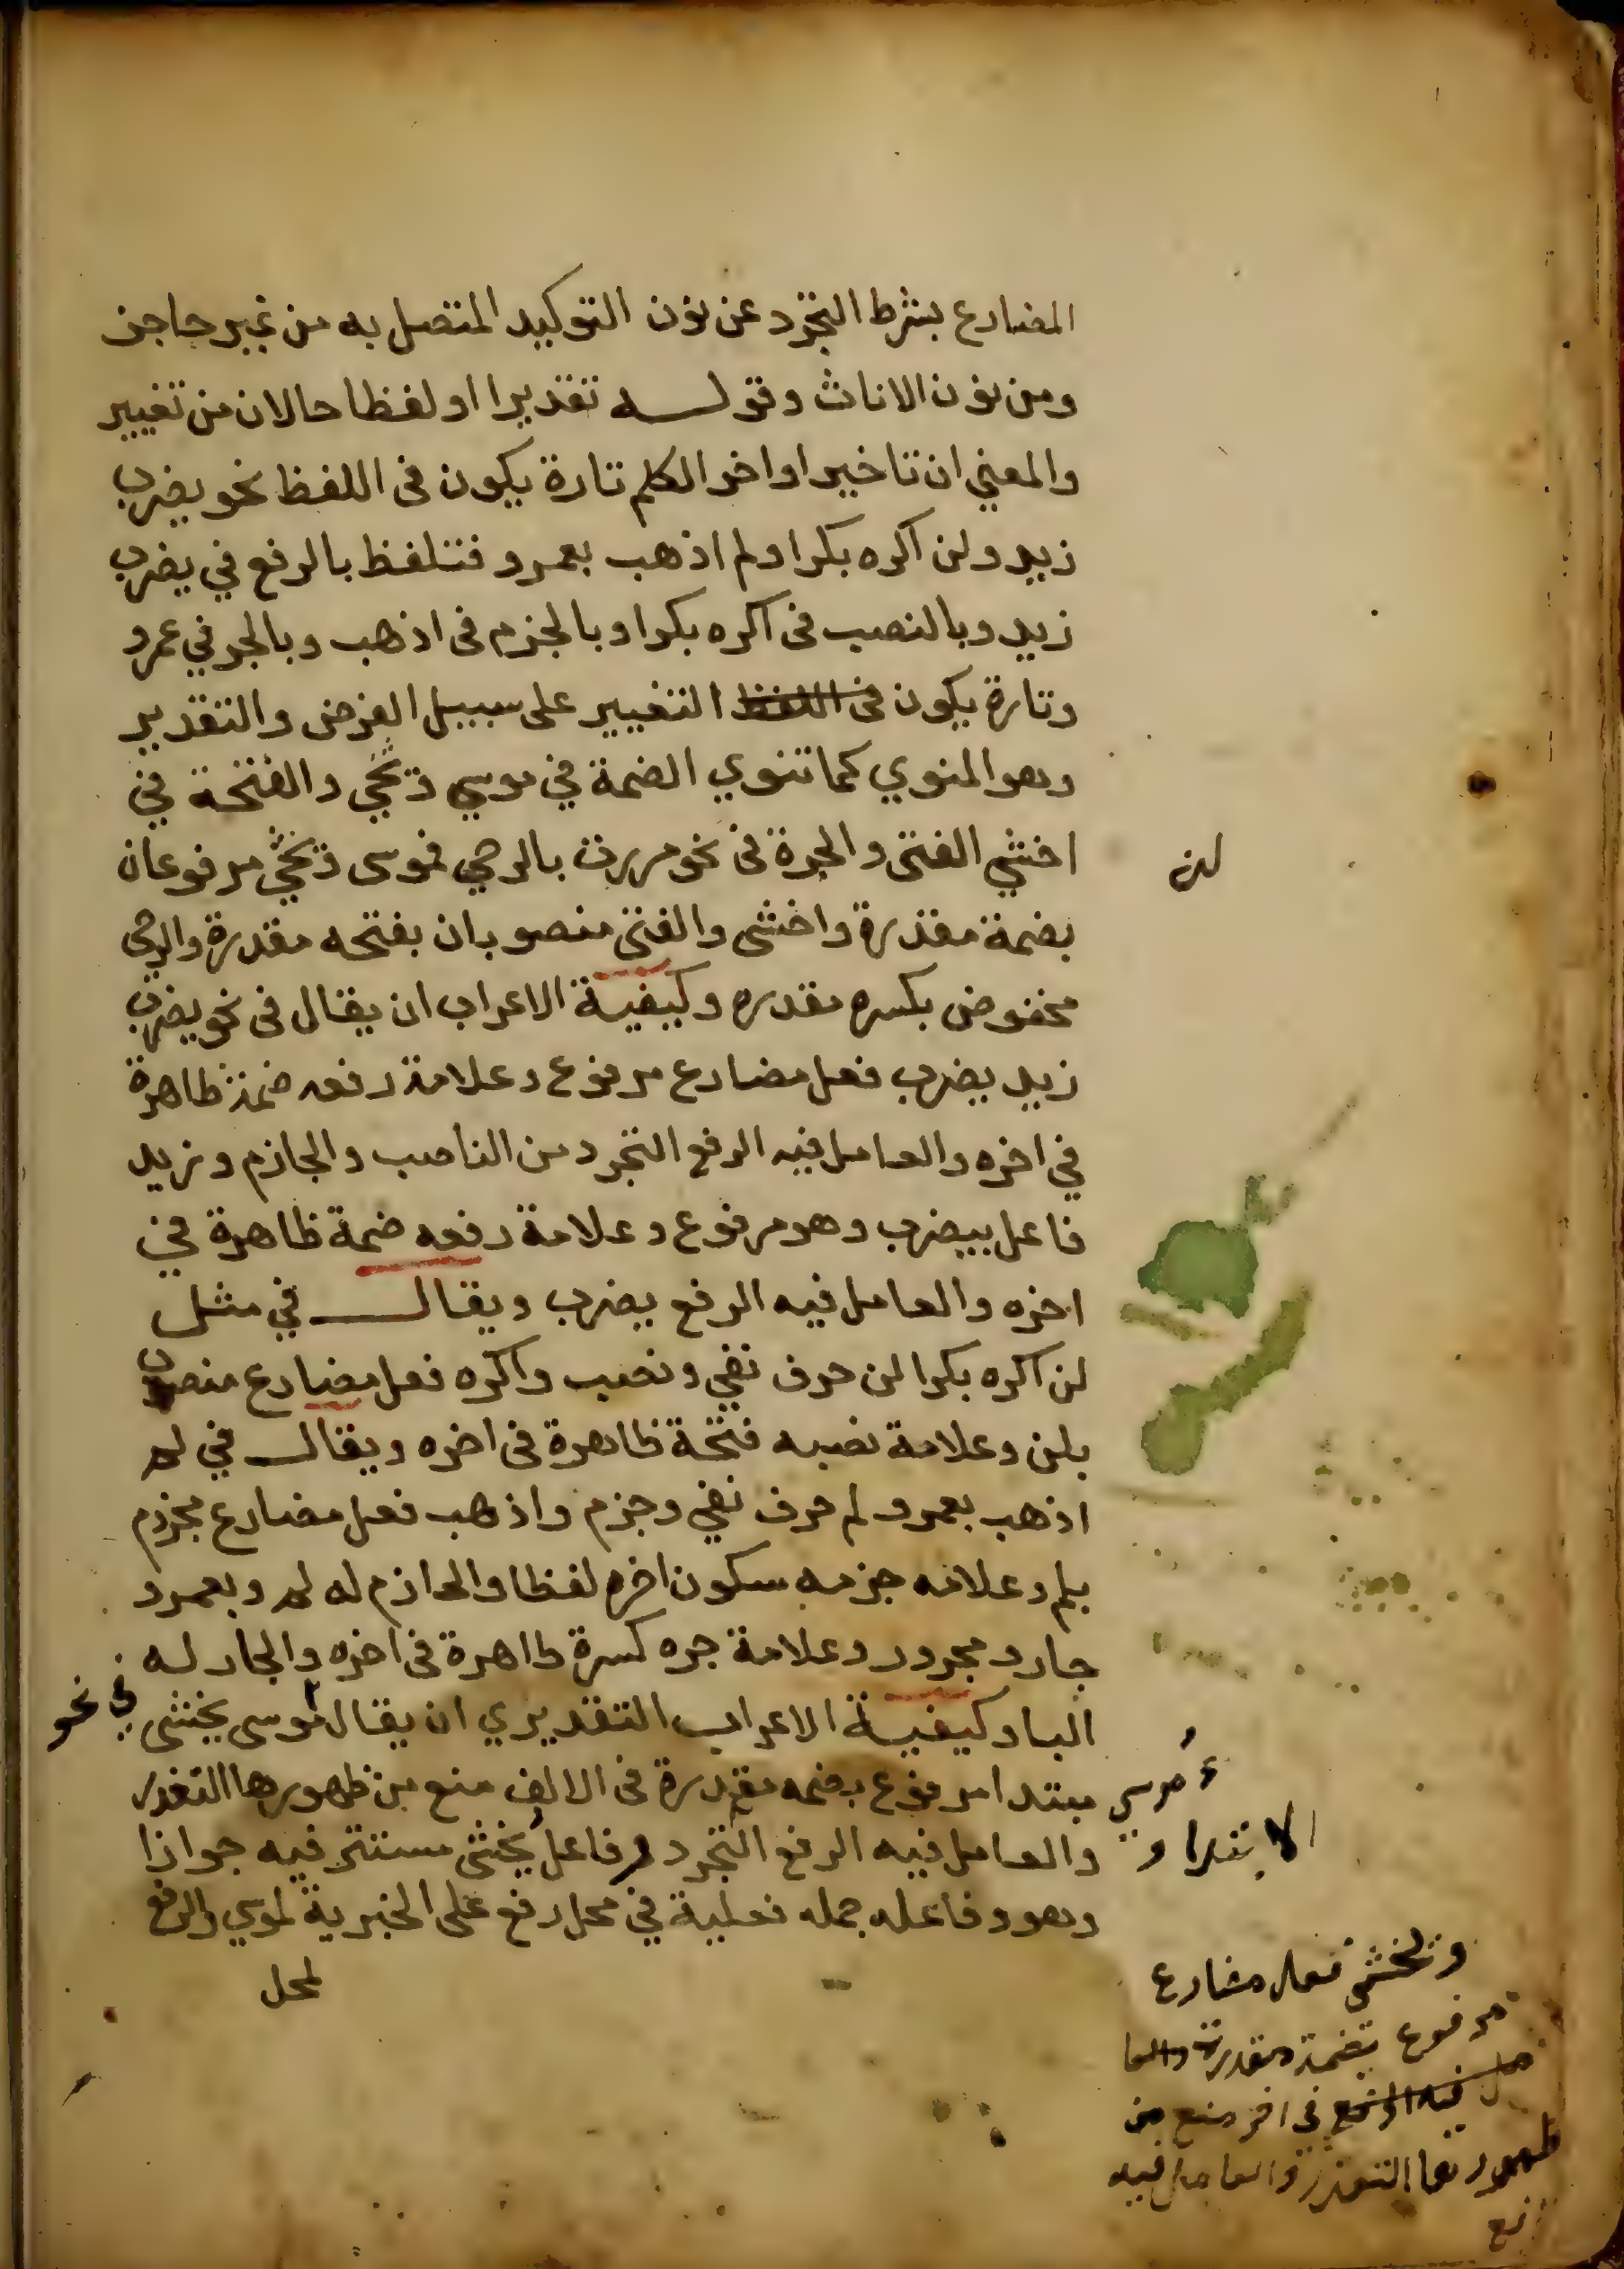 المضارع بشرط التجرد عن نون التوكيد المتصل به من غير حاجز
ومن نون الاناث وقوله تقديرا او لفظا حالان من تغيير
والمعني ان تاخير اواخر الكلم تارة يكون فى اللفظ نحو يضرب
زيد ولن اكره بكرا ولم اذهب بعمرو فتلفظ بالرفع في يضرب
زيد وبالنصب فى اكره بكرا وبالجزم فى اذهب وبالجر في عمرو
وتارة يكون فى اللفظ التغيير على سبيل الفرض والتقدير
وهو المنوي كما تنوي الضمة في موسي وتخشي والفتحة في
لن
اخشي الفتى والجرة فى نحو مررت بالرحي فموسى وتخشي مرفوعان
بضمة مقدرة واخشى والفتى منصوبان بفتحه مقدرة والرحى
مخفوض بكسره مقدره وكيفية الاعراب ان يقال فى نحو يضرب
زيد يضرب فعل مضارع مرفوع وعلامة رفعه ضمة ظاهرة
في اخره والعامل فيه الرفع التجرد من الناصب والجازم وزيد
فاعل بيضرب وهو مرفوع وعلامة رفعه ضمة ظاهرة في
اخره والعامل فيه الرفع يضرب ويقال في مثل
لن اكره بكرا لن حرف نفي ونصب واكره فعل مضارع منصوب
بلن وعلامة نصبه فتحة ظاهرة فى اخره ويقال في لم
اذهب بعمرو لم حرف نفي وجزم واذهب فعل مضارع مجزوم
بلم وعلامه جزمه سكون اخره لفظا والجازم له لم وبعمرو
جار ومجرور وعلامة جره كسرة ظاهرة فى اخره والجار له
البا وكيفية الاعراب التقديري ان يقال موسى يخشى
في نحو
مبتدا مرفوع بضمه مقدرة فى الالف منع من ظهورها التعذر
موسي
والعامل فيه الرفع التجرد وفاعل يخشى مستتر فيه جوازا
الابتدا و
وهو وفاعله جمله فعلية في محل رفع على الخبرية لموسي والرفع
لمحل
وتخشي فعل مضارع
مرفوع بضمة مقدرة والعا
مل فيه الرفع في اخره منع من
ظهورها التعذر والعامل فيه